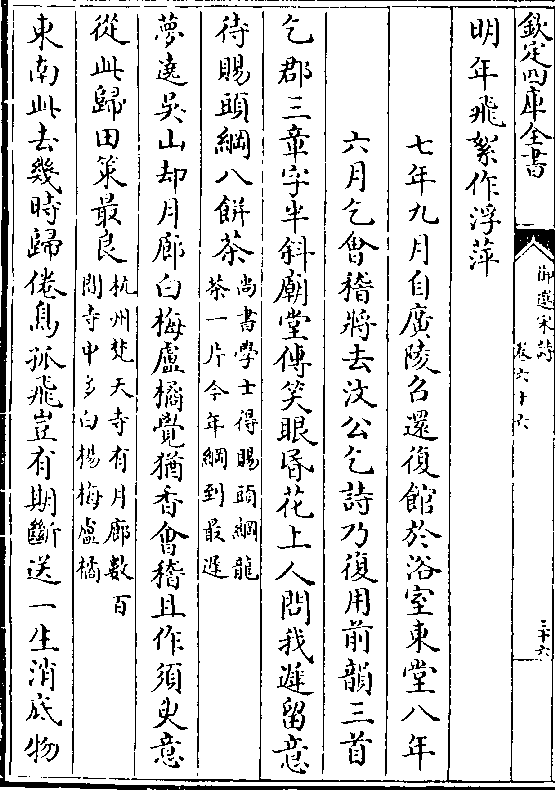 欽定四庫全書
御選宋詩
卷六十六
三十六
明年飛絮作浮萍
七年九月自廣陵召還復館於浴室東堂八年
六月乞會稽將去汶公乞詩乃復用前韻三首
乞郡三章字半斜廟堂傳笑眼昏花上人問我遲留意
待賜頭綱八餅茶
尚書學士得賜頭綱龍
茶一片今年綱到最遲
夢遶吳山却月廊白梅盧橘覺猶香會稽且作須臾意
從此歸田策最良
杭州梵天寺有月廊數百
間寺中多白楊梅盧橘
東南此去幾時歸倦鳥孤飛豈有期斷送一生消底物